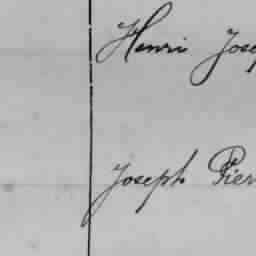 Henri Josep
Joseph Pier